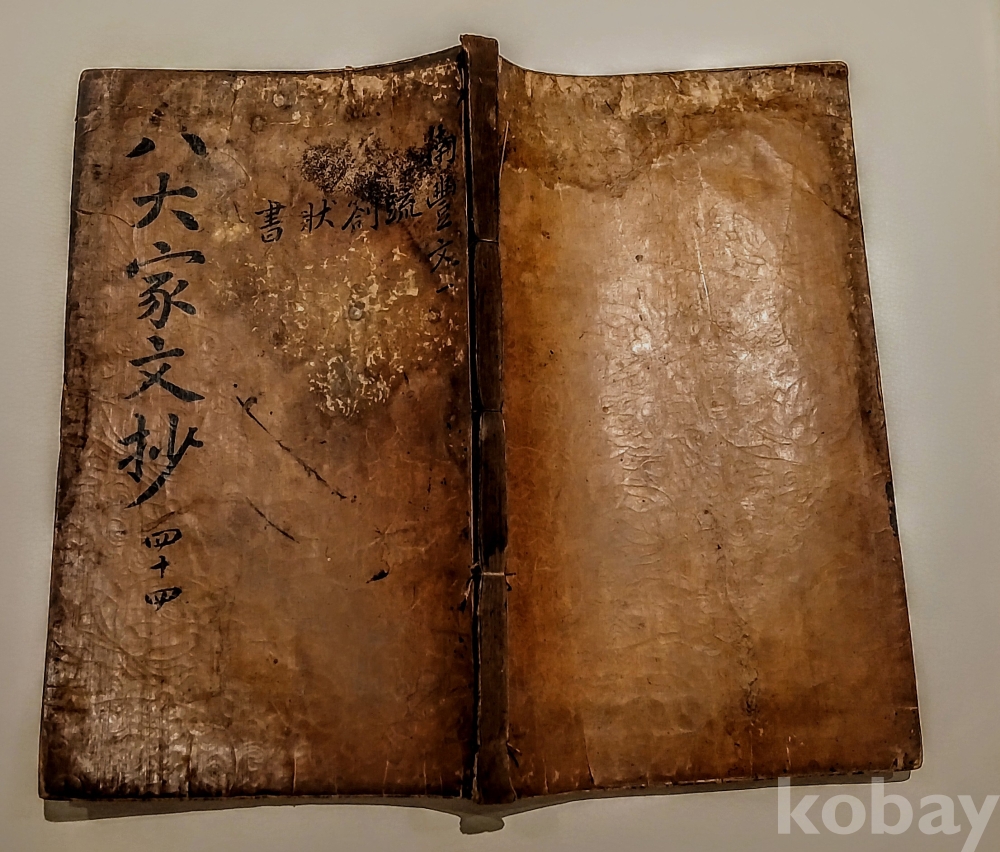 南豐文一
疏
劄
狀
書
八大家文抄 四十四
kobay